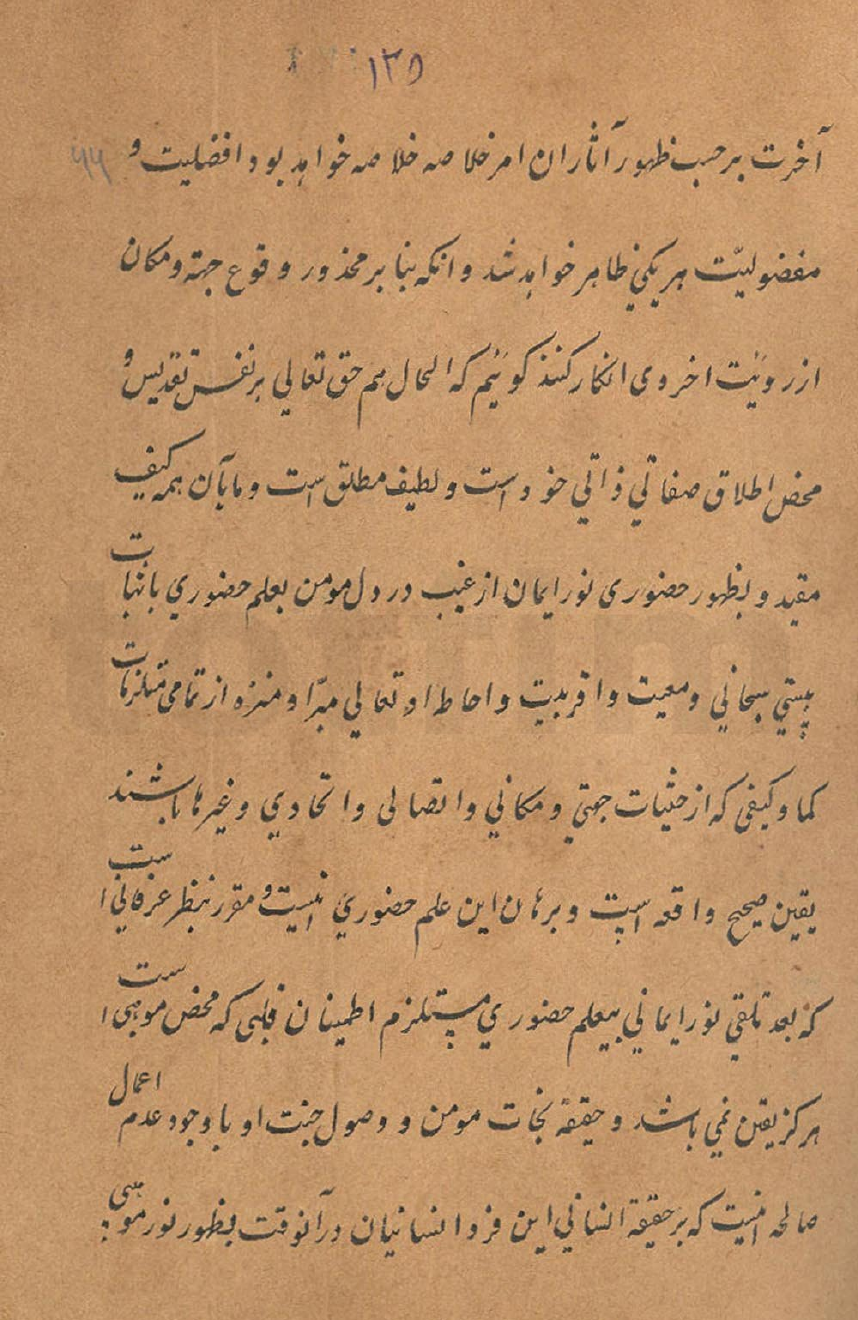 ۱۳۵
آخرت بر حسب ظهور آثاران امر خلاصه خلاصه خواهد بود افضلیت و
مفضولیّت هر یکی ظاهر خواهد شد و انکه بنا بر محذور وقوع جهة و مکان
از رویت اخروی انکار کنند کوئیم که الحال هم حق تعالی بر نفس تقدیس و
محض اطلاق صفاتی ذاتی خود است و لطیف مطلق است و ما بآن همه کیف
مقید و بظهور حضوری نور ایمان از غیب در دل مومن بعلم حضوری بانهات
هستی سبحانی و معیت و اقربیت و احاطه او تعالی مبرّا و منزه از تمامی مستلزمات
کما و کیفی که از حیثیات جهتی و مکانی و اتصالی و اتحادی و غیرها باشند
یقین صحیح واقعه است و برهان این علم حضوری اینست و مقرر بنظر عرفانی است
که بعد تلقی نور ایمانی بعلم حضوری مستلزم اطمینان قلبی که محض موهبی است
هرکز یقین نمی باشد و حقیقة نجات مومن و وصول جنت او با وجود عدم اعمال
صالحه اینست که بر حقیقة انسانی این فرد انسانیان در آنوقت بظهور نور موهبی